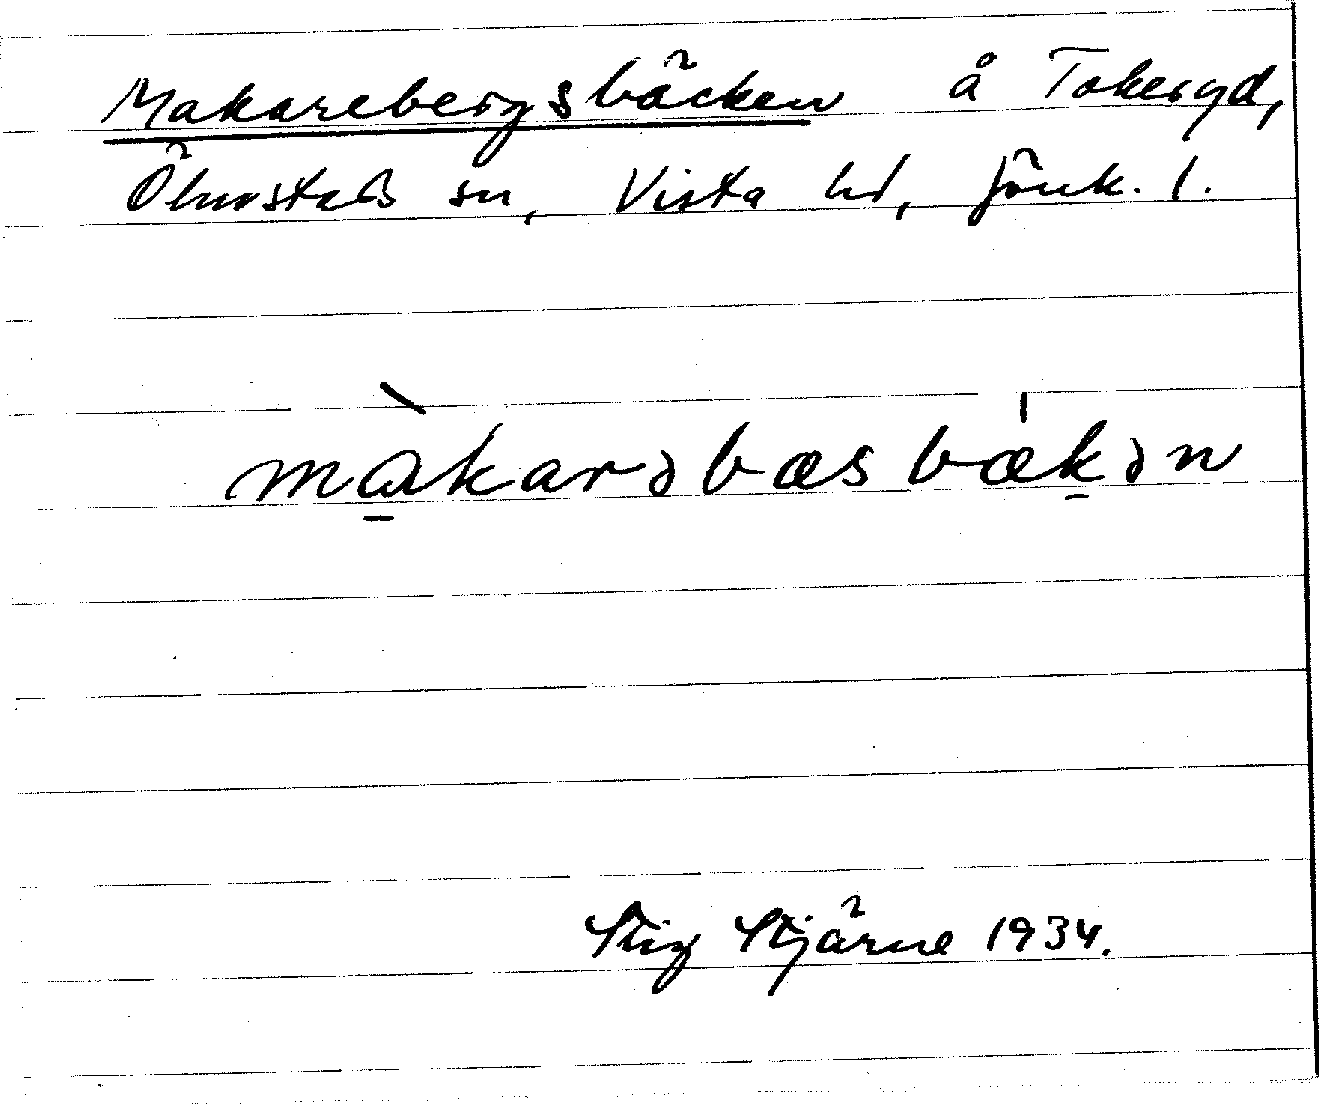 Makarebergsbäcken å Takeryd,
Ölmstads sn, Vista hd, Jönk. l.
mɑ̀karəbæsbækən
Stig Stjärne 1934.